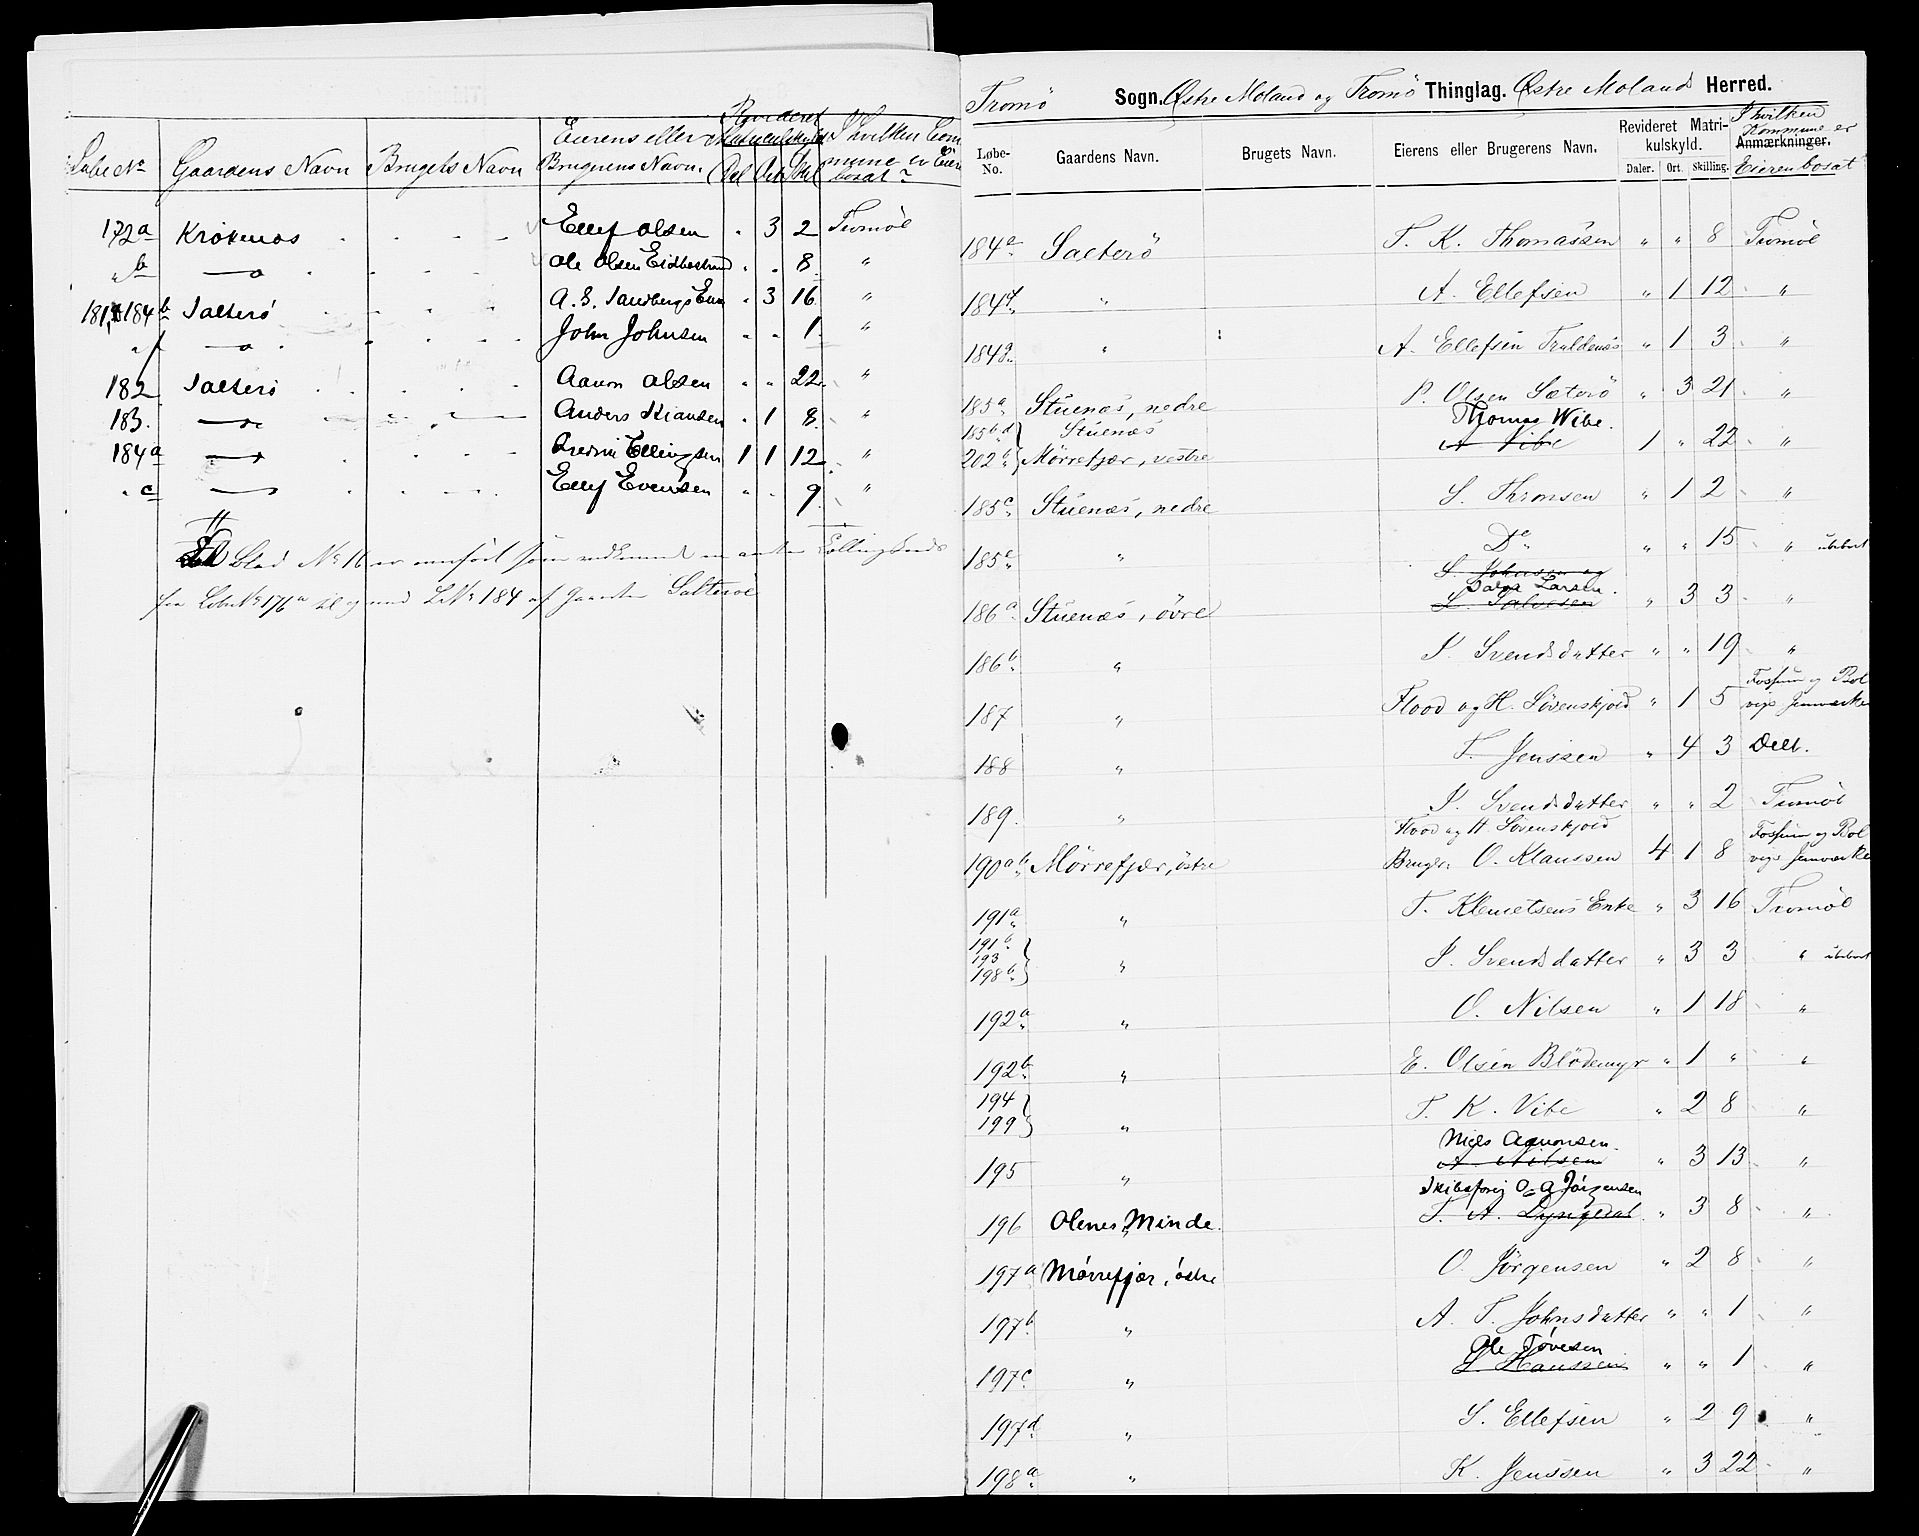 Løbe No Gaardens Navn Brugets Navn Eierens eller Brugerens Navn. Revideret Matrikulskyld Dal Ort Skil I hvilken Commune er Eieren bosat?
172a Krokenæs Ellef Olsen " 3 2 Tromöe
" b —"— Ole Olsen Eidbostrand " " 8 "
181, 184 b Salterö A. S. Sandbergs Enke " 3 16 "
" f —"— John Johnsen " " 1 "
182 Salterö Aanon Olsen " " 22 "
183. —"— Anders Kiansen " 1 8 "
184a —"— Ellingsen 1 1 12 "
" c —"— Ellef Evensen " " 9 "
Blad No 16 er anført som vedkommende en anden
fra Løbe No 176a til og med L No 184 af Gaarden Salteröe
Tromö Sogn. Østre Moland og Tromö Thinglag. Østre Moland Herred.
Løbe-No. Gaardens Navn. Brugets Navn. Eierens eller Brugerens Navn. Revideret Matrikulskyld. Daler. Ort. Skilling. Anmærkninger. I hvilken Kommune er Eieren bosat
184e Sælterö T. K. Thomassen " " 8 Tromöe
184f " A. Ellefsen " 1 12 "
184g " A. Ellefsen Traldenæs " 1 3 "
185a Stuenæs, nedre P. Olsen Sæterö " 3 21 "
Thomas Wibe.
185b.d Stuenæs
202b Mørrefjær, vestre A Vibe 1 " 22 "
185c Stuenæs, nedre S. Thronsen " 1 2 "
185e " Do " " 15 " ubebot
S. Johnsen og
Larsen.
186a Stuenæs, övre L. Salvesen " 3 3 "
186b " I. Svendsdatter " " 19 "
187 " Flood og H. Lövenskjold " 1 5 Fossum og Bolvigs Jernværker
188 " T. Jenssen " 4 3 Do.
189. " I. Svendsdatter " " 2 Tromöe
Flood og H. Lövenskjold
190a b Mørrefjær, östre Bruger O. Klaussen 4 1 8 Fossum og Bolvigs Jernværker
191a " T. Klemetsens Enke " 3 16 Tromöe
191b
193
198b " I. Svendsdatter " 3 3 " ubebot
192a " O. Nilsen " 1 18 "
192b " E. Olsen Blödemyr " 1 " "
194
199 " T. K. Vibe " 2 8 "
Niels Aanonsen.
195 " A. Nilsen " 3 13 "
Skibsförer O. A Jörgensen
196 Olenes Minde. T. A. Lyngdal. " 3 8 "
197a Mörrefjær, östre O. Jörgensen " 2 8 "
197b " A. T. Johnsdatter " " 1 "
Ole Tövesen
197c " S. Hanssen " " 1 "
197d " S. Ellefsen " 2 9 "
198a " K. Jenssen " 3 22 "